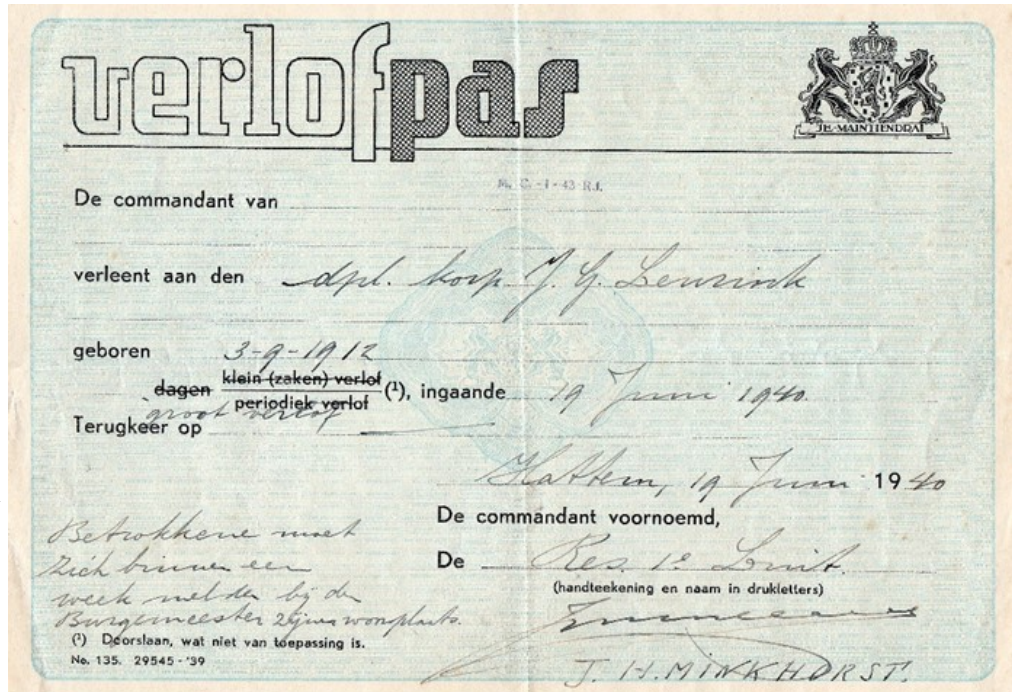 verlofpas
JE·MAINTIENDRAI
M. C. -I - 43 R.I.
De commandant van
verleent aan den dpl. korp. J. G. Leusink
geboren 3-9-1912
dagen klein (zaken) verlof
periodiek verlof (¹), ingaande 19 Juni 1940.
groot verlof
Terugkeer op
Hattem, 19 Juni 1940
De commandant voornoemd,
De Res. 1e Luit.
(handteekening en naam in drukletters)
J. H. MINKHORST.
Betrokkene moet
zich binnen een
week melden bij den
Burgemeester zijner woonplaats.
(¹) Doorslaan, wat niet van toepassing is.
No. 135. 29545 - '39